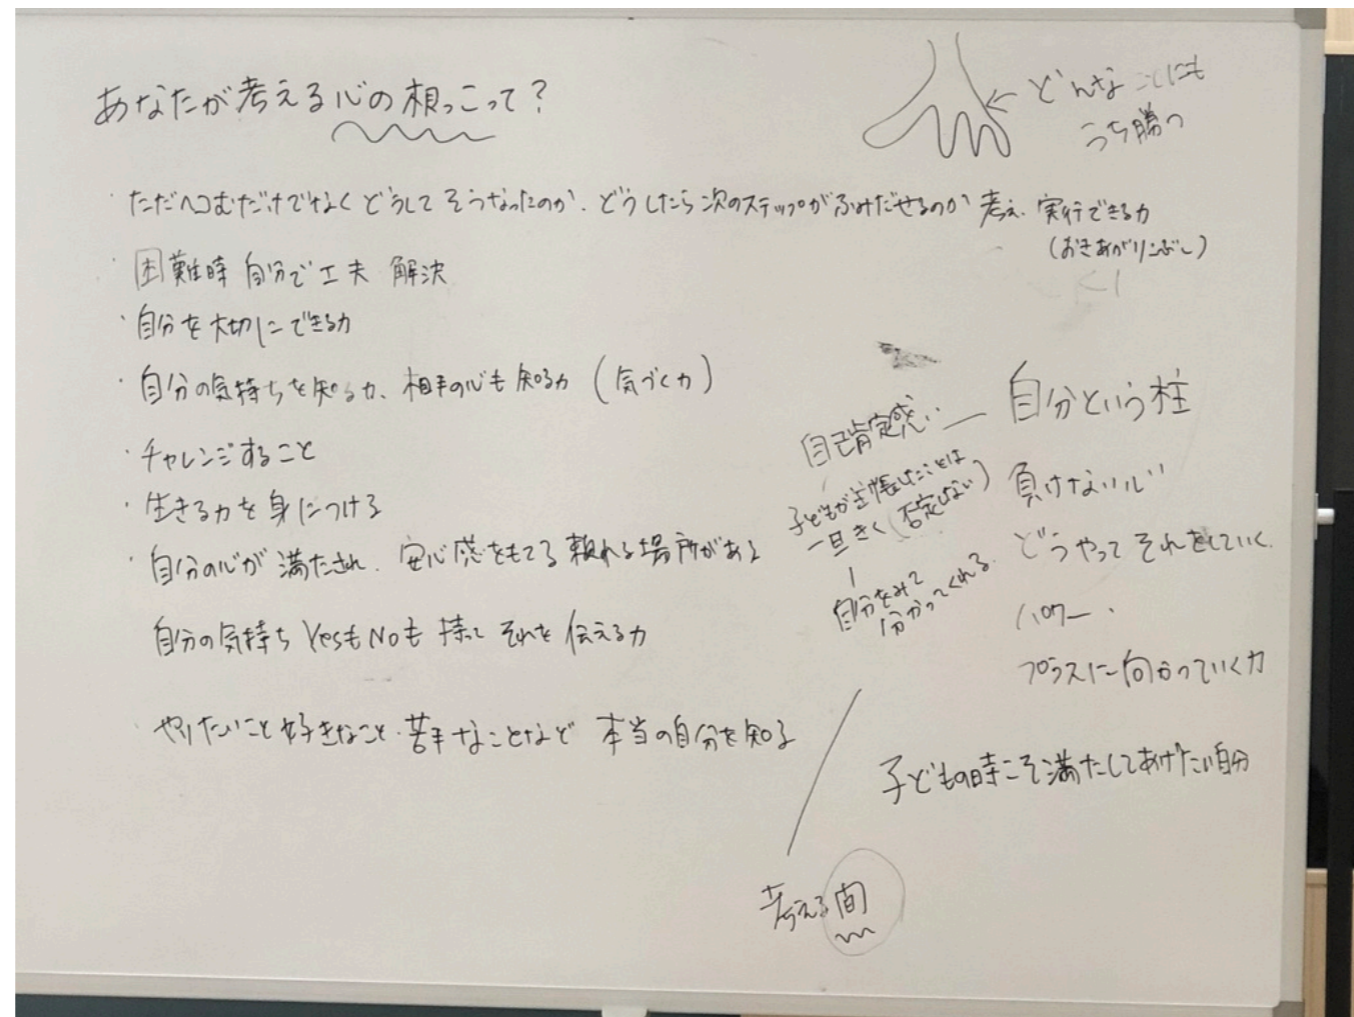 あなたが考える心の根っこって?
どんなことにも
うち勝つ
・ただヘコむだけでなくどうしてそうなったのか、どうしたら次のステップがふみだせるのか考え、実行できる力
(おきあがりこぶし)
・困難時 自分で工夫 解決
・自分を大切にできる力
・自分の気持ちを知る力、相手の心も知る力(気づく力)
・チャレンジすること
・生きる力を身につける
・自分の心が満たされ、安心感をもてる頼れる場所がある
自分の気持ちYesもNoも持ってそれを伝える力
やりたいこと好きなこと・苦手なことなど 本当の自分を知る
自己肯定感
子どもが主張したことは
一旦きく(否定しない)
自分をみて
分かってくれる
自分という柱
負けない心
どうやってそれをしていく
パワー
プラスに向かっていく力
子どもの時こそ満たしてあげたい自分
考える間